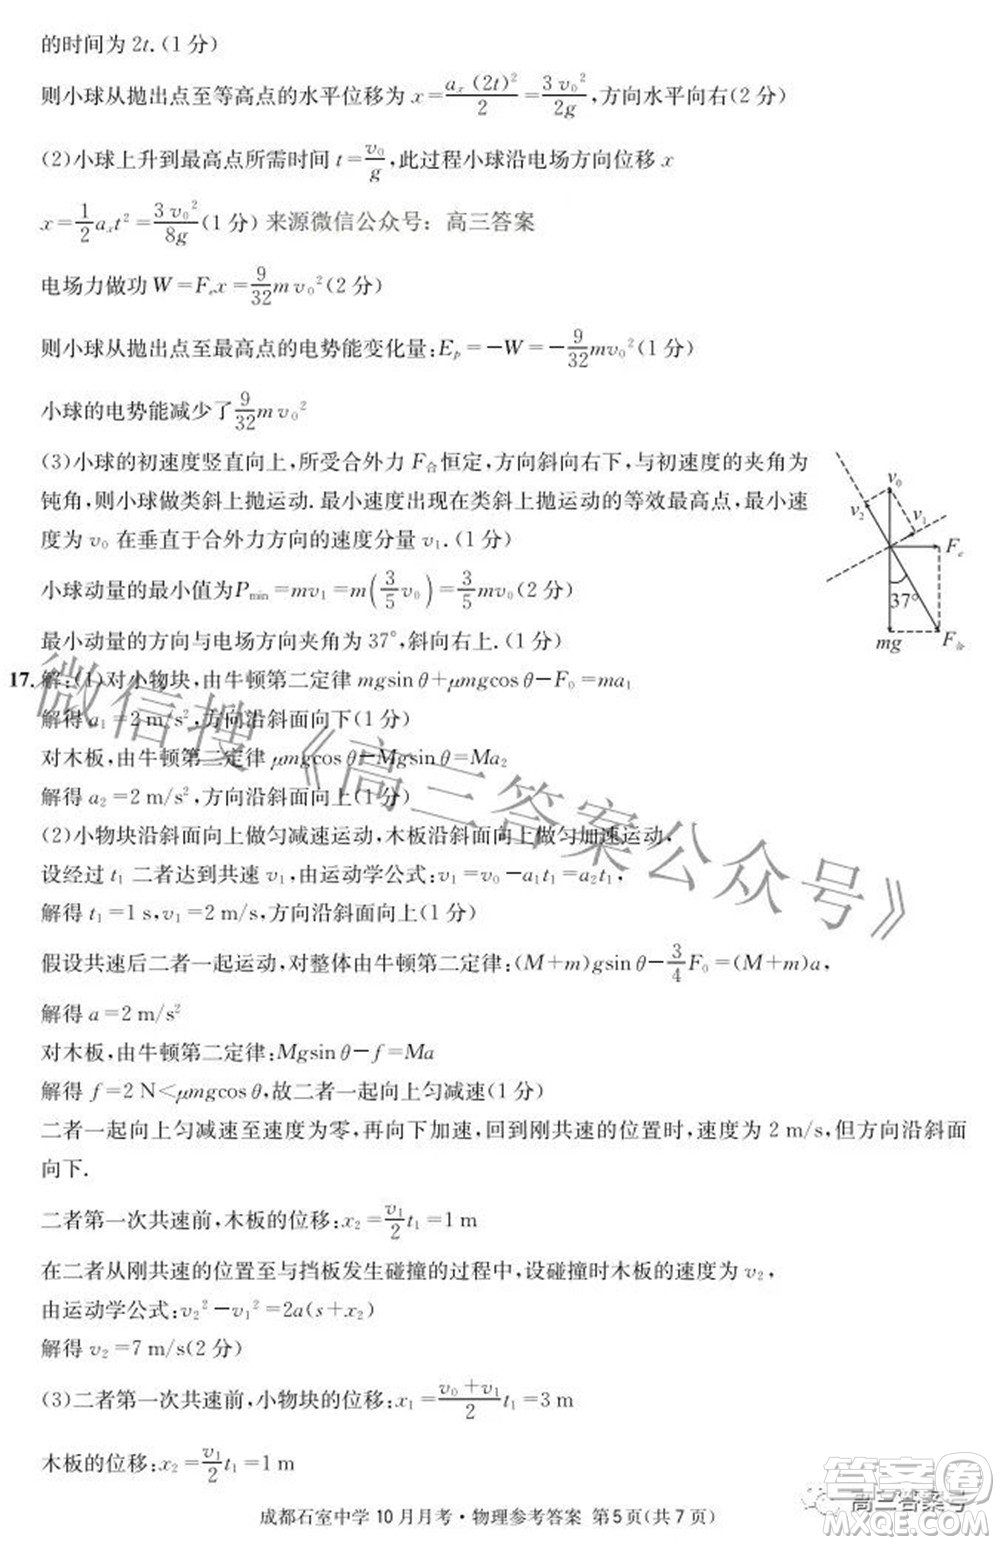 的时间为 2t.(1 分)
则小球从抛出点至等高点的水平位移为 x=aₓ(2t)²/2=3v₀²/2g,方向水平向右(2 分)
(2)小球上升到最高点所需时间 t=v₀/g,此过程小球沿电场方向位移 x
x=1/2aₓt²=3v₀²/8g(1 分) 来源微信公众号：高三答案
电场力做功 W=Fₑx=9/32mv₀²(2 分)
则小球从抛出点至最高点的电势能变化量:Eₚ=-W=-9/32mv₀²(1 分)
小球的电势能减少了9/32mv₀²
(3)小球的初速度竖直向上,所受合外力 F合恒定,方向斜向右下,与初速度的夹角为
钝角,则小球做类斜上抛运动.最小速度出现在类斜上抛运动的等效最高点,最小速
度为 v₀ 在垂直于合外力方向的速度分量 v₁.(1 分)
小球动量的最小值为Pmin=mv₁=m(3/5v₀)=3/5mv₀(2 分)
最小动量的方向与电场方向夹角为 37°,斜向右上.(1 分)
v₀
v₂
v₁
Fₑ
37°
mg
F合
17.解:(1)对小物块,由牛顿第二定律 mgsin θ+μmgcos θ-F₀=ma₁
解得 a₁=2 m/s²,方向沿斜面向下(1 分)
对木板,由牛顿第二定律 μmgcos θ-Mgsin θ=Ma₂
解得 a₂=2 m/s²,方向沿斜面向上(1 分)
(2)小物块沿斜面向上做匀减速运动,木板沿斜面向上做匀加速运动,
设经过 t₁ 二者达到共速 v₁,由运动学公式:v₁=v₀-a₁t₁=a₂t₁,
解得 t₁=1 s,v₁=2 m/s,方向沿斜面向上(1 分)
假设共速后二者一起运动,对整体由牛顿第二定律:(M+m)gsin θ-3/4F₀=(M+m)a,
解得 a=2 m/s²
对木板,由牛顿第二定律:Mgsin θ-f=Ma
解得 f=2 N<μmgcos θ,故二者一起向上匀减速(1 分)
二者一起向上匀减速至速度为零,再向下加速,回到刚共速的位置时,速度为 2 m/s,但方向沿斜面
向下.
二者第一次共速前,木板的位移:x₂=v₁/2t₁=1 m
在二者从刚共速的位置至与挡板发生碰撞的过程中,设碰撞时木板的速度为 v₂,
由运动学公式:v₂²-v₁²=2a(s+x₂)
解得 v₂=7 m/s(2 分)
(3)二者第一次共速前,小物块的位移:x₁=v₀+v₁/2t₁=3 m
木板的位移:x₂=v₁/2t₁=1 m
成都石室中学 10 月月考·物理参考答案 第 5 页(共 7 页)
微信搜《高三答案公众号》
高三答案号
答案卷
MXQE.COM